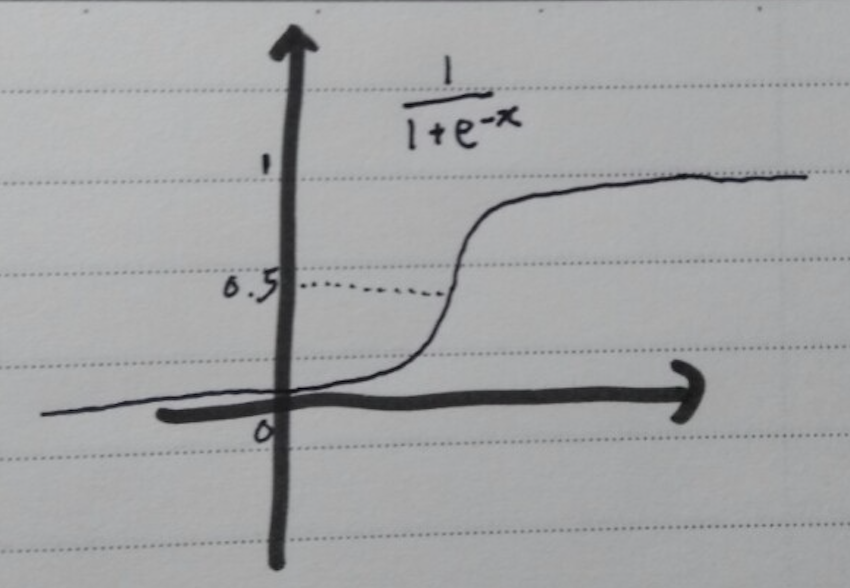 1
1+e-x
1
0.5
0